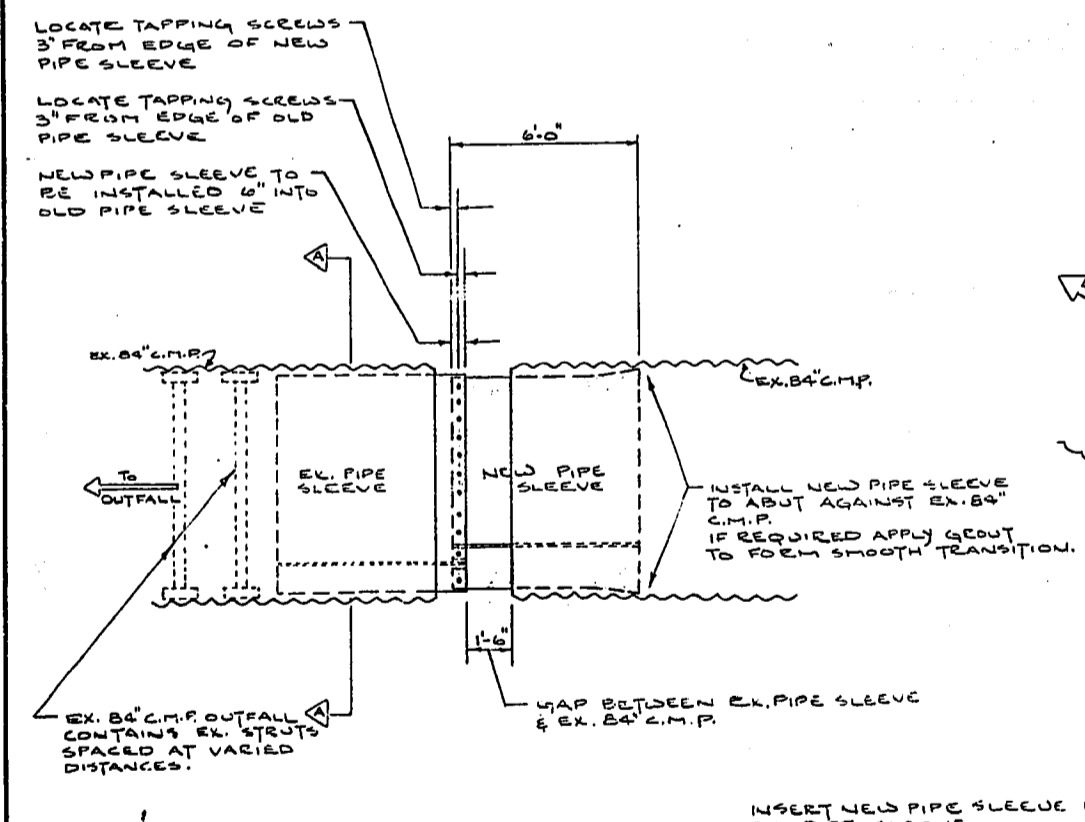 LOCATE TAPPING SCREWS
3" FROM EDGE OF NEW
PIPE SLEEVE
LOCATE TAPPING SCREWS
3" FROM EDGE OF OLD
PIPE SLEEVE
NEW PIPE SLEEVE TO
BE INSTALLED 6" INTO
OLD PIPE SLEEVE
6'-0"
A
EX. 84" C.M.P.
EX. 84" C.M.P.
TO
OUTFALL
EX. PIPE
SLEEVE
NEW PIPE
SLEEVE
INSTALL NEW PIPE SLEEVE
TO ABUT AGAINST EX. 84"
C.M.P.
IF REQUIRED APPLY GROUT
TO FORM SMOOTH TRANSITION.
1'-6"
GAP BETWEEN EX. PIPE SLEEVE
& EX. 84" C.M.P.
EX. 84" C.M.P. OUTFALL
CONTAINS EX. STRUTS
SPACED AT VARIED
DISTANCES.
A
INSERT NEW PIPE SLEEVE